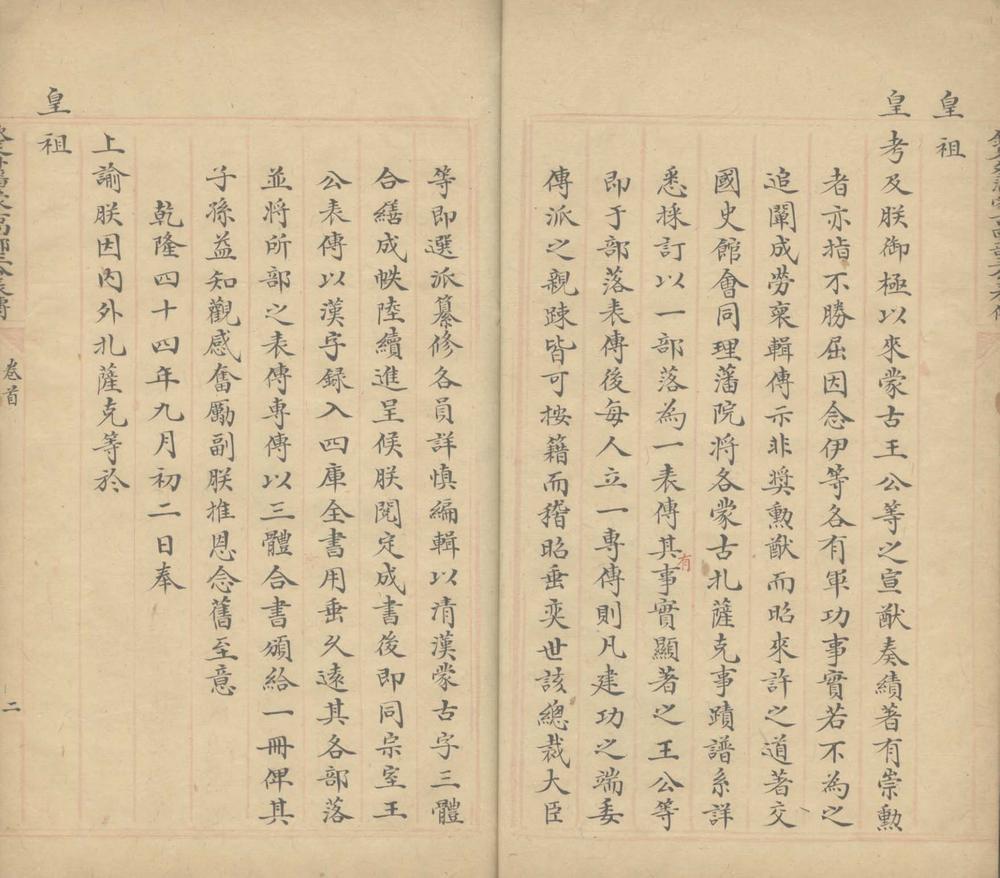 皇祖
皇考及朕御極以來蒙古王公等之宣猷奏績著有崇勳
者亦指不勝屈因念伊等各有軍功事實若不為之
追闡成勞裒輯傳示非奬勳猷而昭來許之道著交
國史館會同理藩院將各蒙古札薩克事蹟譜系詳
悉採訂以一部落為一表傳其有事實顯著之王公等
即于部落表傳後每人立一專傳則凡建功之端委
傳派之親踈皆可按籍而稽昭垂奕世該總裁大臣
等即選派纂修各員詳慎編輯以清漢蒙古字三體
合繕成帙陸續進呈候朕閱定成書後即同宗室王
公表傳以漢字録入四庫全書用垂久遠其各部落
並將所部之表傳專傳以三體合書頒給一冊俾其
子孫益知觀感奮勵副朕推恩念舊至意
乾隆四十四年九月初二日奉
上諭朕因內外札薩克等於
皇祖
卷首
二